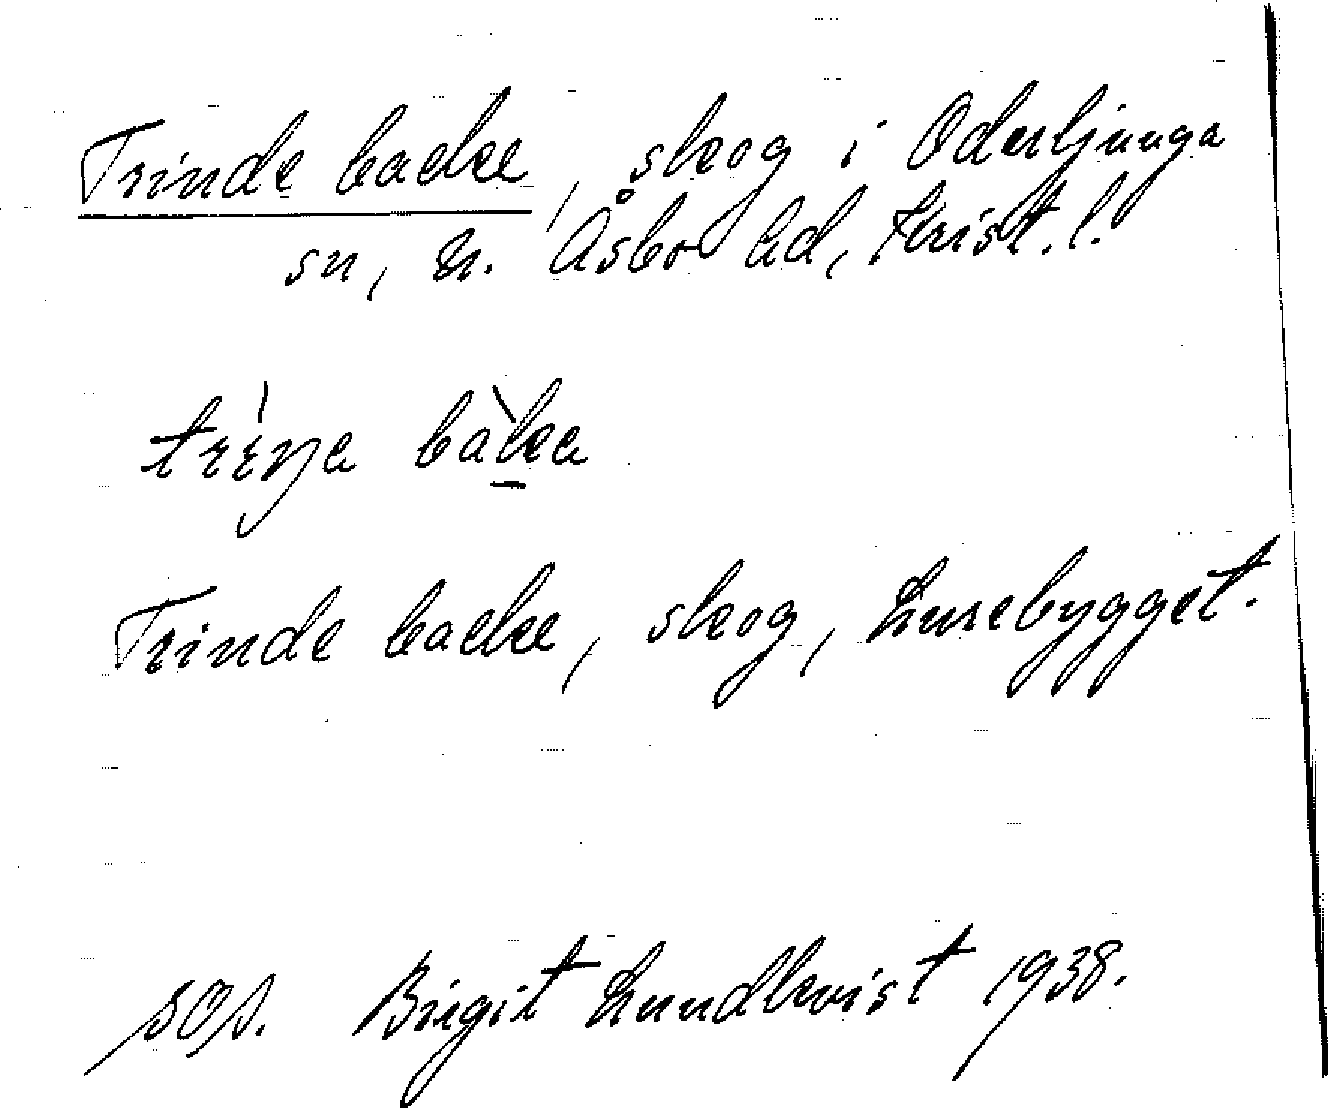 Trinde backe, skog i Oderljunga
sn, N. Åsbo hd, Krist. l.
Trinde backe, skog, Lurebygget.
SOS. Birgit Lundkvist 1938.